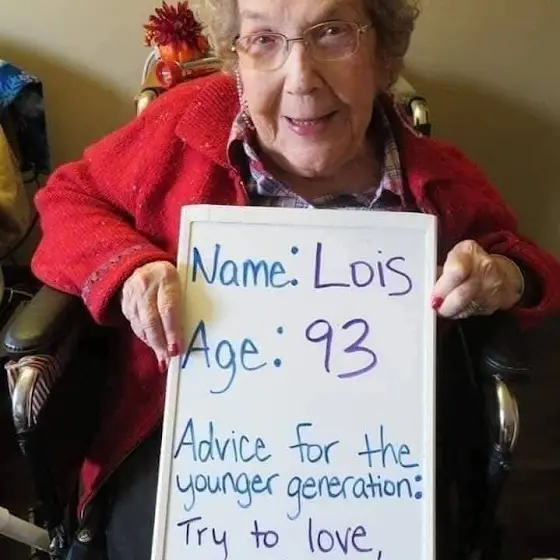 Name: Lois
Age: 93
Advice for the
younger generation:
Try to love,